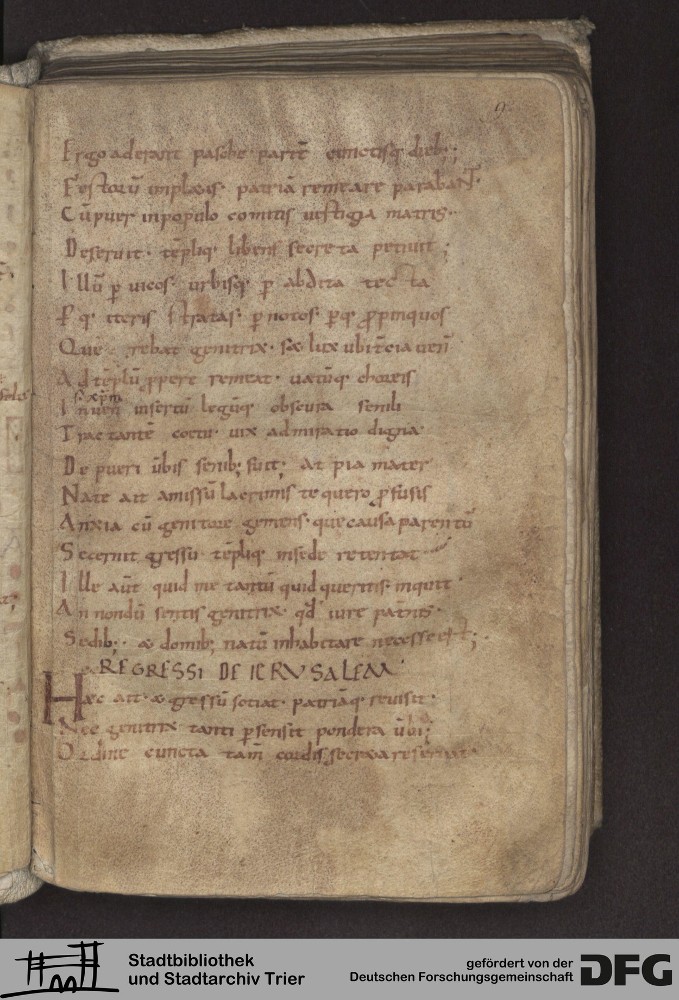 9
Ergo aderant pasche partē cunctisq; dieb;;
Festorū impletis patriā remeare parabaNT.
Cū puer in populo comitis uestigia matris.
Deseruit. tēpliq. libens secreta petiuit;
Illū p̱ uicos urbisq; p̱ abdita tecta
P̱q. iteris stratas. p̱ notos. p̱q; ꝓpinquos
Que rebat genitrix. sǣ lux ubi tcia uen̄
Ad tēplū ꝓpere remeat. uatūq; choreis
s. xp̄m
Inuen̄ insertū legūq; obscura senili
Tractantē coetu. uix admiratio digna
De pueri ūbis senib; fuit; at pia mater
Nate ait amissū lacrimis te quero ꝓfusis
Anxia cū genitore gemens. que causa parentū
Secernit gressū. tēpliq. in sede retentat
Ille aūt quid me tantū quid queritis. inquit
An nondū sentis genitrix. qđ iure patris.
Sedib;. & domib; natū inhabitare necesse est;
REGRESSI DE IERUSALEM
Haec ait & gressū sociat. patriāq; reuisit.
Nec genitrix tanti p̱sensit pondera ūbi;
Ordine cuncta tam̄ cordis secreta reseruata
Stadtbibliothek
und Stadtarchiv Trier
gefördert von der
Deutschen Forschungsgemeinschaft
DFG